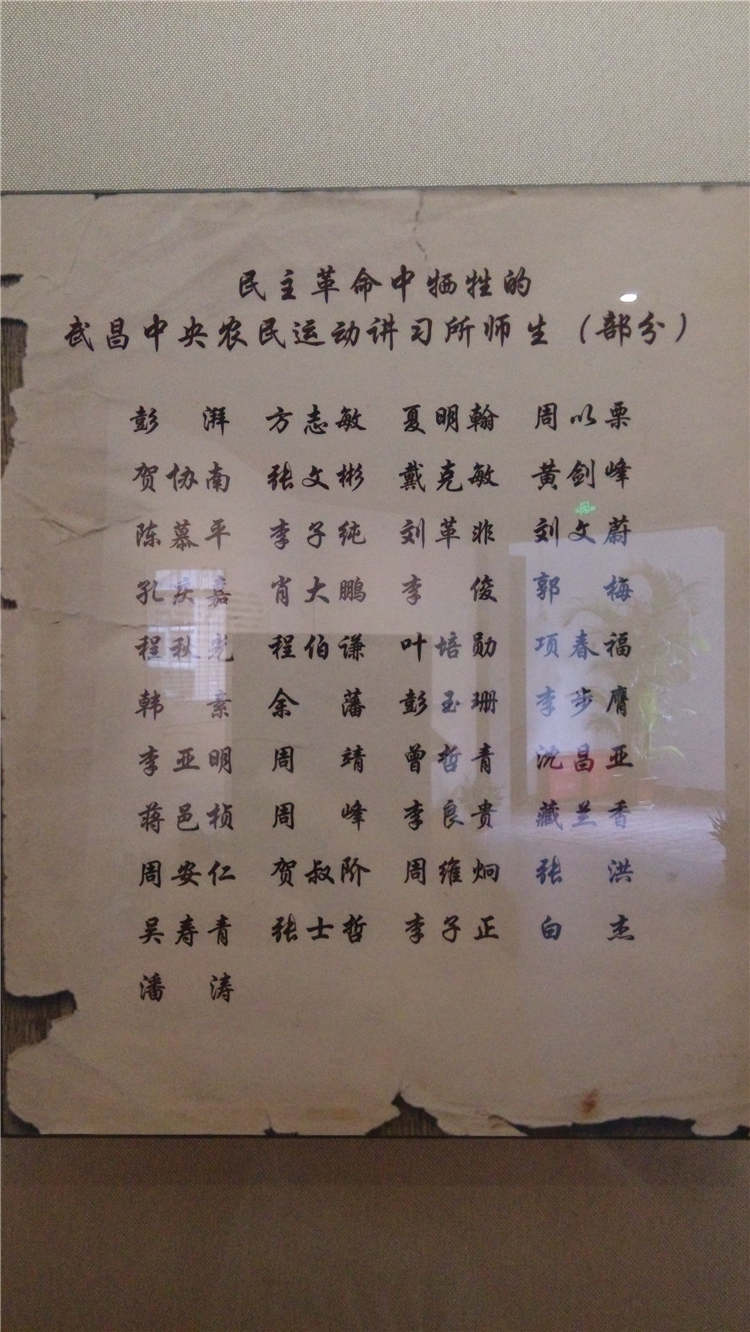 民主革命中牺牲的
武昌中央农民运动讲习所师生（部分）
彭湃 方志敏 夏明翰 周以栗
贺协南 张文彬 戴克敏 黄剑峰
陈慕平 李子纯 刘革非 刘文蔚
孔庆嘉 肖大鹏 李俊 郭梅
程秋光 程伯谦 叶培勋 项春福
韩亲 余藩 彭玉珊 李步膺
李亚明 周靖 曾哲青 沈昌亚
蒋邑桢 周峰 李良贵 藏兰香
周安仁 贺叔阶 周维炯 张洪
吴寿青 张士哲 李子正 白杰
潘涛